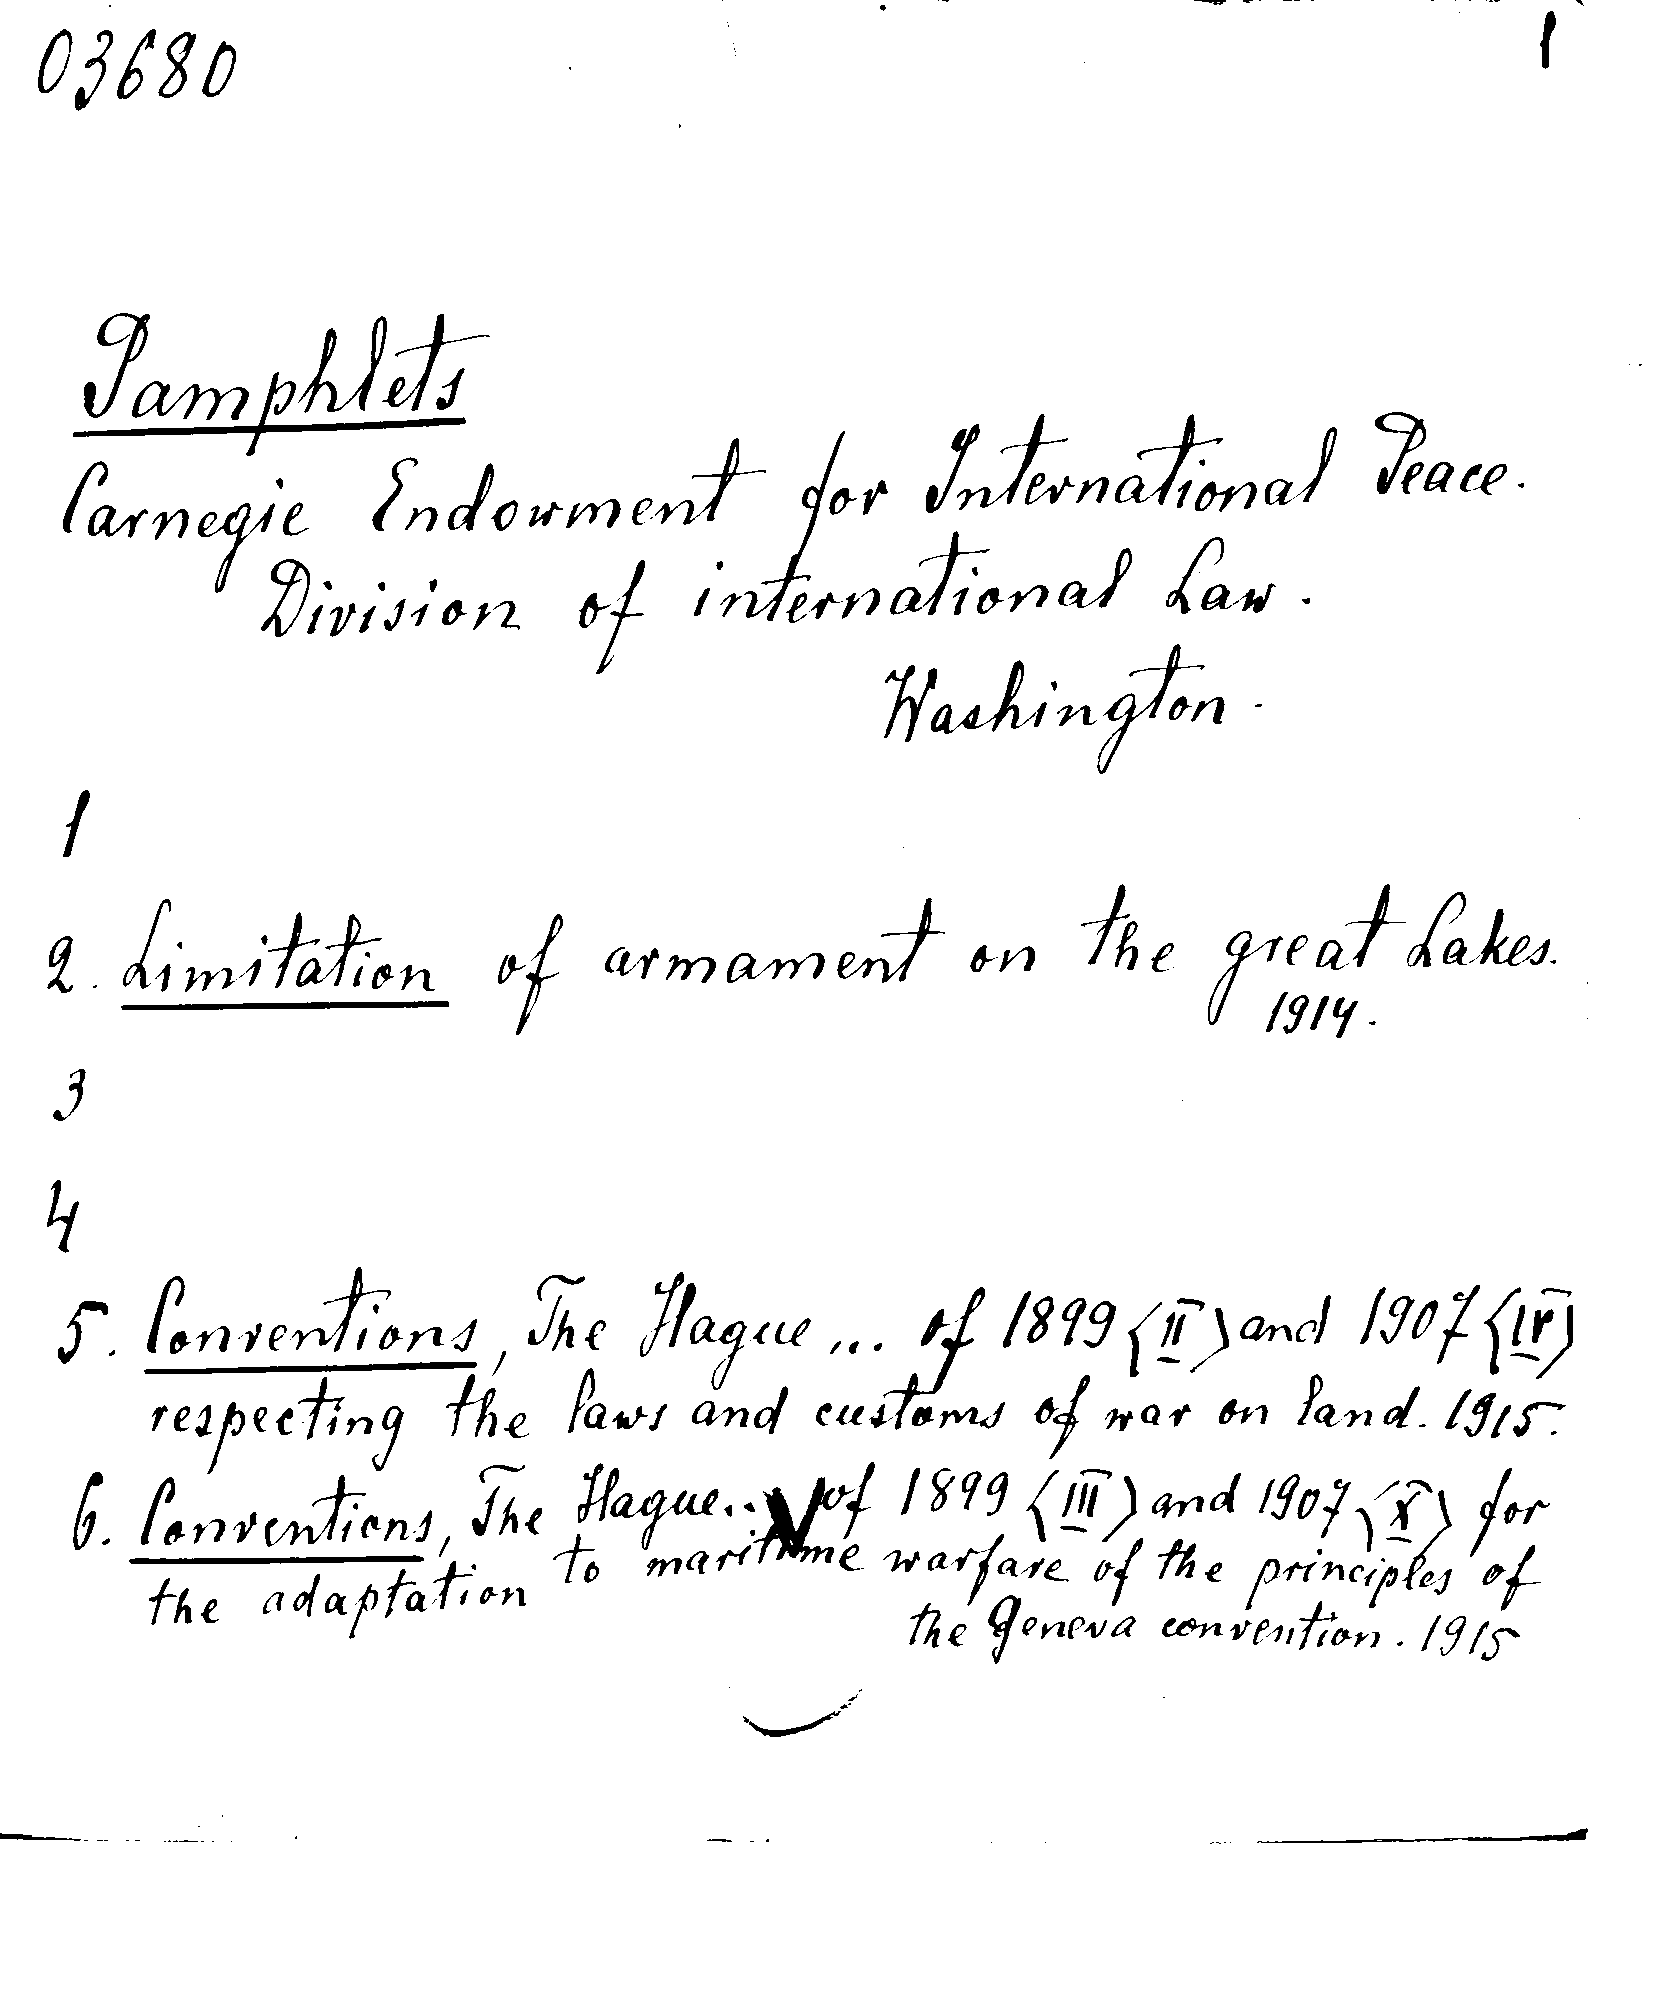 03680
1
Pamphlets
Carnegie Endowment for International Peace.
Division of international Law.
Washington.
1
2. Limitation of armament on the great Lakes.
1914.
3
4
5. Conventions, The Hague ... of 1899 (II) and 1907 (IV)
respecting the laws and customs of war on land. 1915.
6. Conventions, The Hague... of 1899 (III) and 1907 (X) for
the adaptation to maritime warfare of the principles of
the Geneva convention. 1915